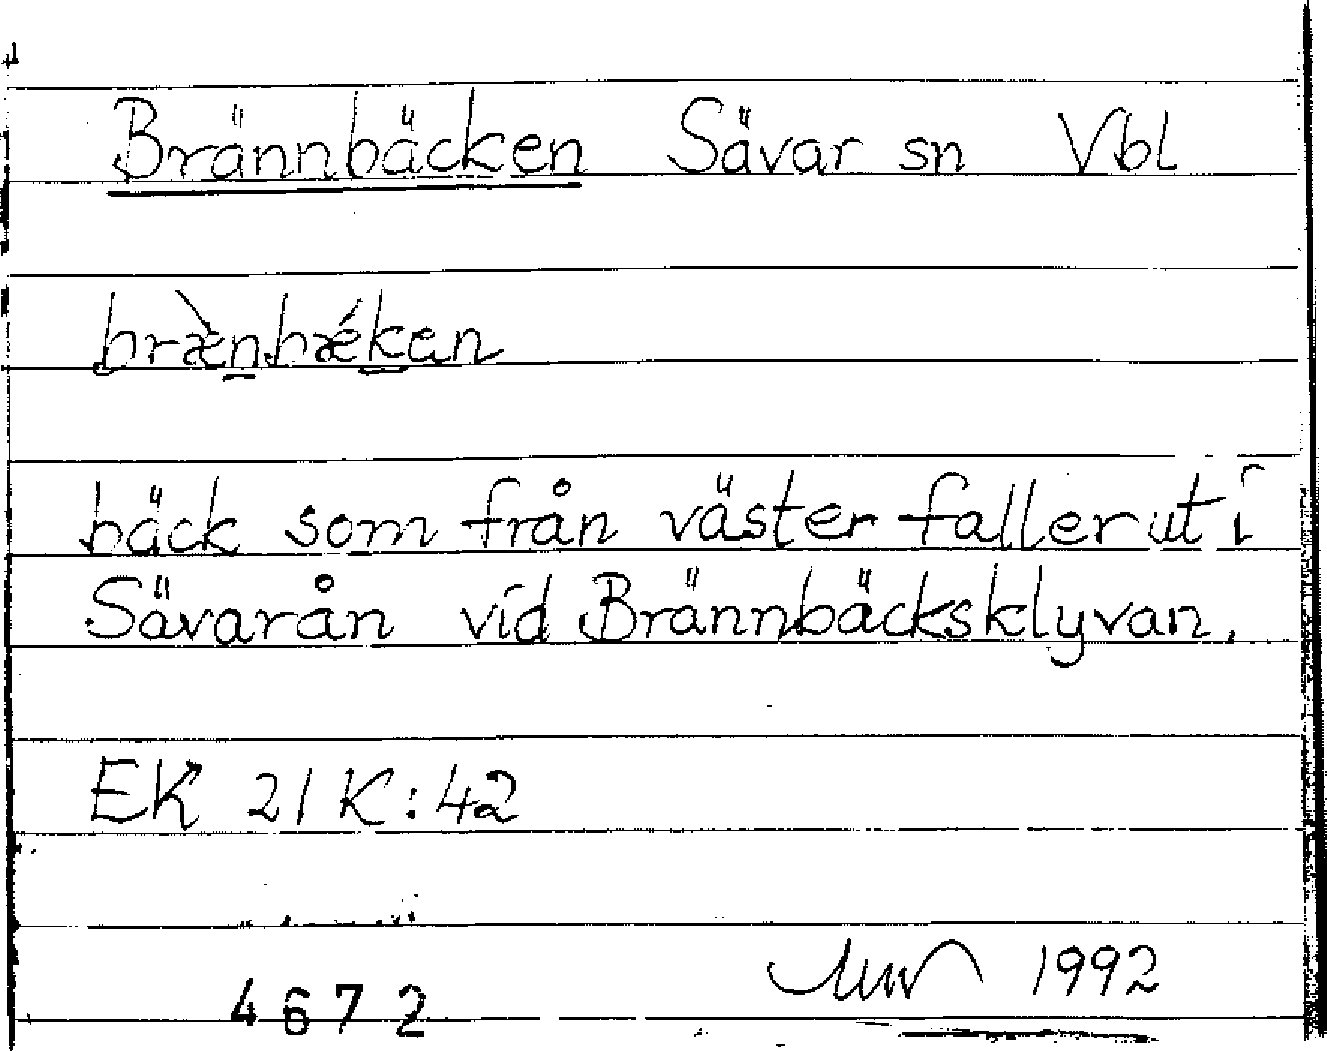 Brännbäcken Sävar sn Vbl
bræ̀nbǽken
bäck som från väster faller ut i
Sävarån vid Brännbäcksklyvan.
EK 21K:42
1992
4672